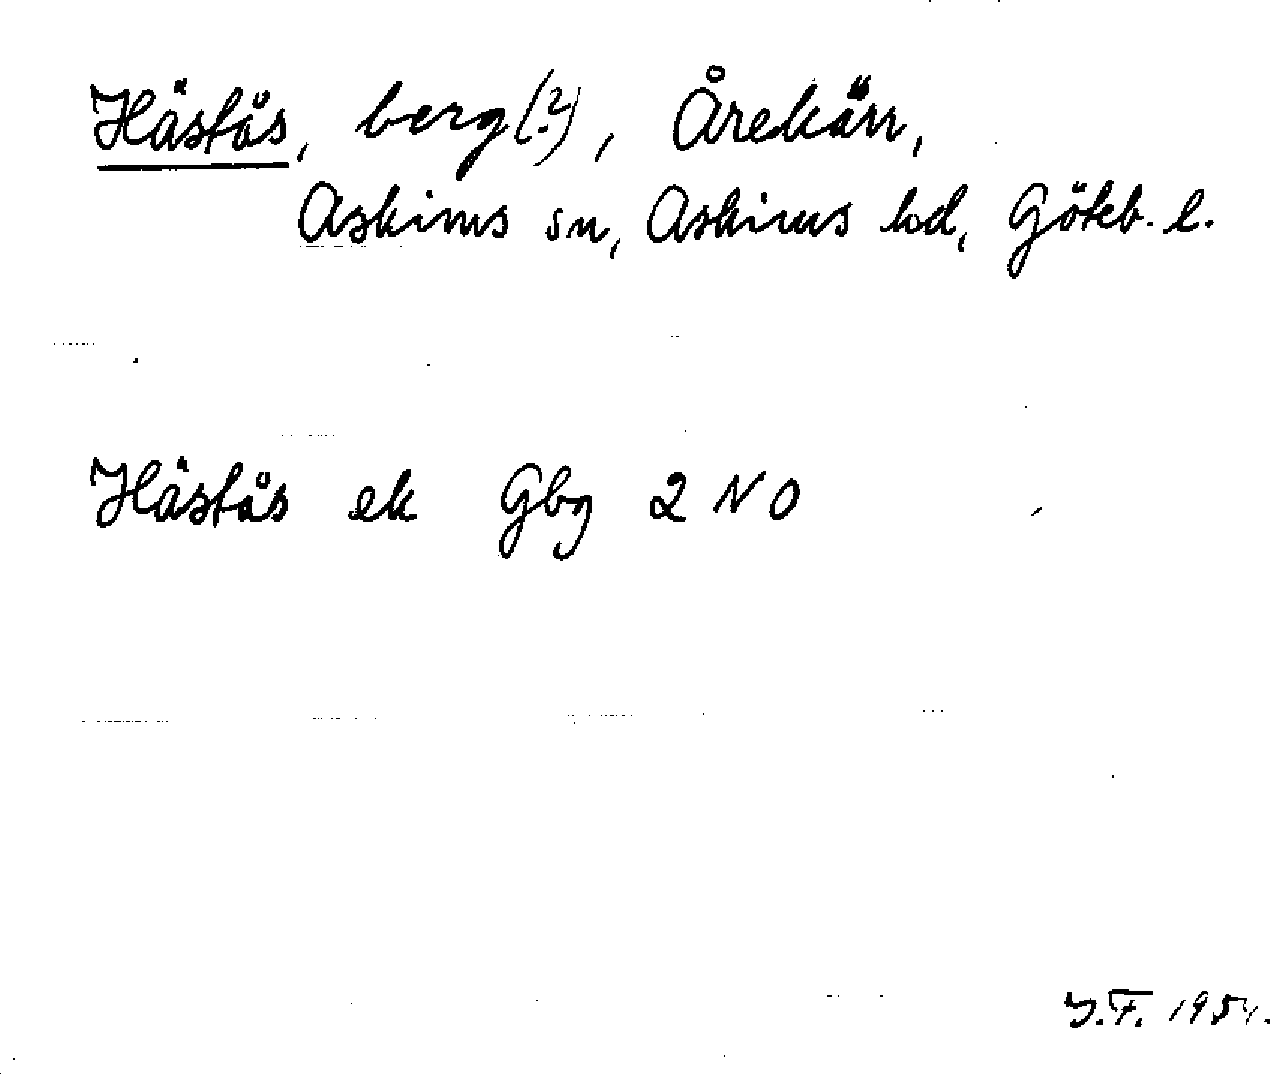 Hästås, berg(?), Årekärr,
Askims sn, Askims hd, Göteb. l.
Hästås ek Gbg 2 NO
1954.